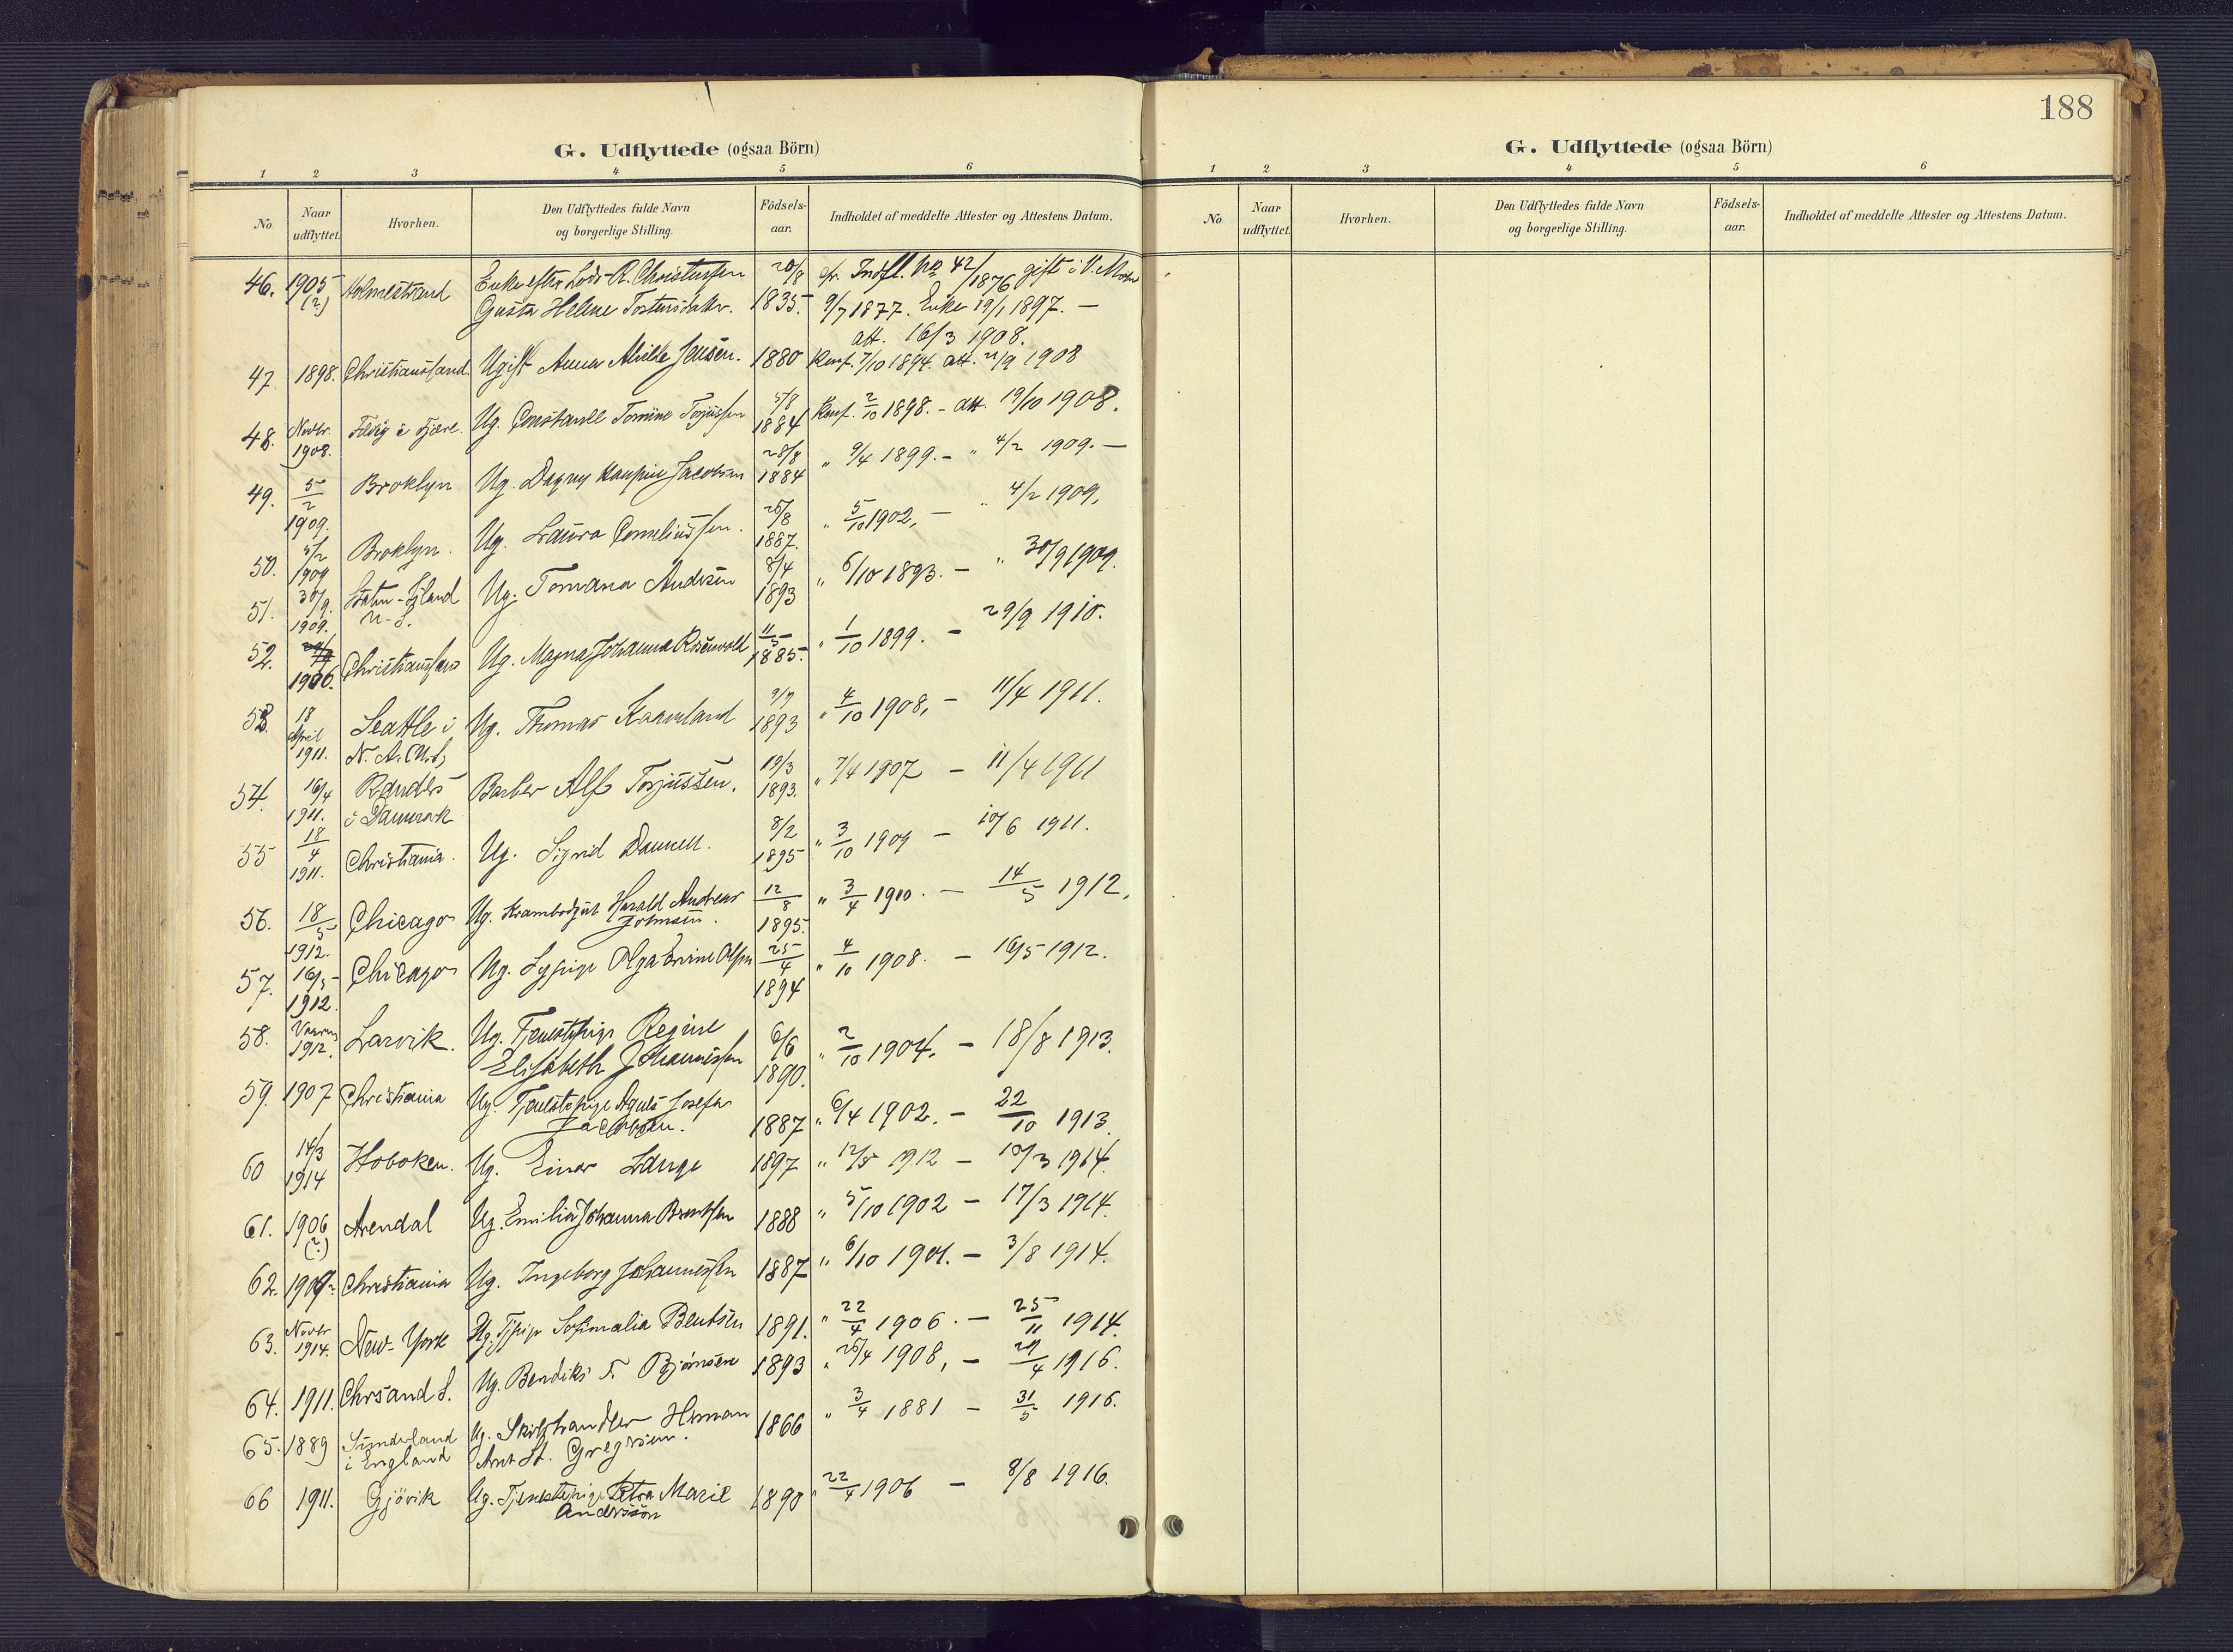 188
G. Udflyttede (ogsaa Börn)
1 2 3 4 5 6
No. Naar udflyttet. Hvorhen. Den Udflyttedes fulde Navn og borgerlige Stilling. Födsels-aar. Indholdet af meddelte Attester og Attestens Datum.
46. 1905 (?) Holmestrand Enke efter Lods R. Christensen 20/8 cfr. Indfl. No 42/1876 gift i V. Moland
Gusta Helene Tostensdatter. 1835. 9/7 1877. Enke 19/1 1897. —
att. 16/3 1908.
47. 1898. Christianssand. Ugift Anna Jensen. 1880 Konf. 7/10 1894. att. 21/9 1908
48. Novbr. 1908. Fævig i Fjære. Ug. Constance Tomine Torjussen 5/8 1884 Konf. 2/10 1898. — att. 19/10 1908.
49. 5/2 1909. Broklyn Ug. Dagny Jacobsen 28/8 1884 " 9/4 1899. — " 4/2 1909. —
50. 5/2 1909 Broklyn. Ug. Laura Corneliussen. 25/8 1887. " 5/10 1902, — " 4/2 1909,
51. 30/9. 1909. Staten-Island N-S. Ug. Tomana Andersen 8/4 1893 " 6/10 1893. — " 30/9 1909.
52. 1906. Christianssand Ug. Magna Johanna Rosenvold 11/5 1885. " 1/10 1899. — 29/9 1910.
53. 18 April 1911. Seattle i N. A. (U.S.) Ug. Thomas Kaamland 9/7 1893 " 4/10 1908, — 11/4 1911.
54. 16/4 1911. Randers i Danmark Barber Alf Torjussen. 19/3 1893. " 7/4 1907 — 11/4 1911
55 18/4 1911. Christiania. Ug. Sigrid Dannell. 8/2 1895 " 3/10 1909 — 10/6 1911.
56. 18/5 1912. Chicago Ug. Krambodgut Harald Andreas Johnsen. 12/8 1895. " 3/4 1910. — 14/5 1912.
57. 16/5 1912. Chicago Ug. Sypige Olga Olsen 25/4 1894 " 4/10 1908. — 16/5 1912.
58. Vaaren 1912. Larvik. Ug. Tjenestepige Regine
Elisabeth Johannessen 6/6 1890. " 2/10 1904. — 18/8 1913.
59. 1907 Christiania Ug. Tjenestepige Agnes Josefa
Jacobsen. 1887 " 6/4 1902. — 22/10 1913.
60 14/3 1914 Hoboken. Ug. Einar Lange 1897 " 12/5 1912 — 10/3 1914.
61. 1906 (?) Arendal Ug. Emilia Johanna Berntsen 1888 " 5/10 1902 — 17/3 1914.
62. 1909. Christiania Ug. Ingeborg Johannessen 1887 " 6/10 1901. — 3/8 1914.
63. Novbr 1914. New-York Ug. Tjpige Sofimalia Bentsen 1891. " 22/4 1906. — 25/11 1914.
64. 1911. Chrsand S. Ug. Bendiks F. Bjørnsen 1893 " 26/4 1908, — 29/4 1916.
65. 1889 Sunderland i England Ug. Skibshandler Herman
Arnt St. Gregersen. 1866 " 3/4 1881 — 31/5 1916.
66 1911. Gjövik Ug. Tjenestepige Petra Marie
Andersson 1890 " 22/4 1906 — 8/8 1916.
G. Udflyttede (ogsaa Börn)
1 2 3 4 5 6
No Naar udflyttet. Hvorhen. Den Udflyttedes fulde Navn og borgerlige Stilling. Födsels-aar. Indholdet af meddelte Attester og Attestens Datum.